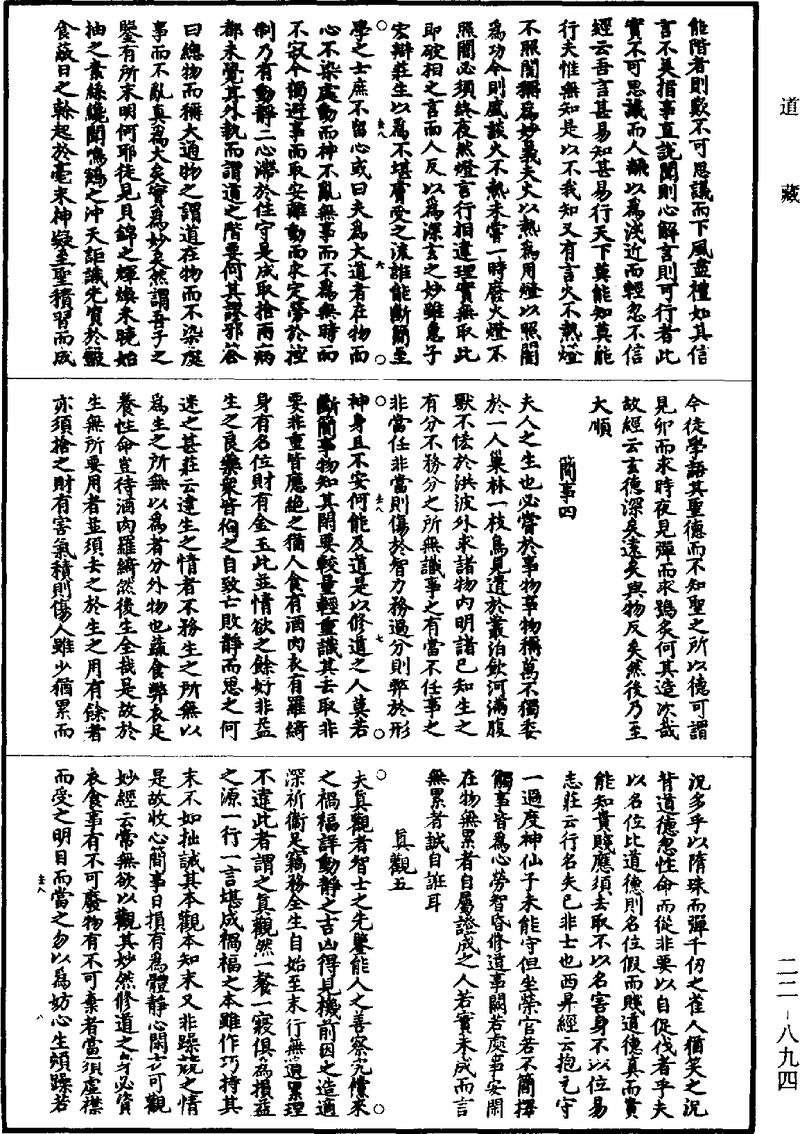 道藏
能階者則歎不可思議而下風盡禮如其信
言不美指事直説聞則心解言則可行者此
實不可思議而人翻以為浅近而輕忽不信
經云吾言甚易知甚易行天下莫能知莫能
行夫惟無知是以不我知又有言火不熱燈
不照闇稱為妙義夫火以熱為用燈以照闇
為功今則盛談火不熱未嘗一時廢火燈不
照闇必須終夜然燈言行相違理實無取此
即破相之言而人反以為深言之妙雖惠子
宏辯莊生以為不堪膚受之流誰能斷簡至
學之士庶不留心或曰夫為大道者在物而
心不染處動而神不亂無事而不為無時而
不寂今獨避事而取安離動而求定勞於控
制乃有動静二心滯於住守是成取捨兩病
都未覺其外執而謂道之階要何其謬邪荅
曰總物而稱大通物之謂道在物而不染處
事而不亂真為大矣實為妙矣然謂吾子之
鑒有所未明何耶徒見貝錦之輝煥未曉始
抽之素絲纔聞鳴鶴之沖天詎識先資於鷇
食蔽日之榦起於毫末神凝至聖積習而成
今徒學語其聖德而不知聖之所以德可謂
見卵而求時夜見彈而求鴞炙何其造次哉
故經云玄德深矣遠矣與物反矣然後乃至
大順
簡事四
夫人之生也必嘗於事物事物稱萬不獨委
於一人巢林一枝鳥見遺於叢泊飲河滿腹
獸不悋於洪波外求諸物内明諸己知生之
有分不務分之所無識事之有當不任事之
非當任非當則傷於智力務過分則弊於形
神身且不安何能及道是以修道之人莫若
斷簡事物知其閑要較量輕重識其去取非
要非重皆應絶之猶人食有酒肉衣有羅綺
身有名位財有金玉此並情欲之餘好非益
生之良藥衆皆徇之自致亡敗静而思之何
迷之甚莊云達生之情者不務生之所無以
為生之所無以為者分外物也蔬食弊衣足
養性命豈待酒肉羅綺然後生全哉是故於
生無所要用者並須去之於生之用有餘者
亦須捨之財有害氣積則傷人雖少猶累而
況多乎以隋珠而彈千仞之雀人猶笑之況
背道德忽性命而從非要以自促伐者乎夫
以名位比道德則名位假而賤道德真而貴
能知貴賤應須去取不以名害身不以位易
志莊云行名失已非士也西昇經云抱元守
一過度神仙子未能守但坐榮官若不簡擇
觸事皆為心勞智昏修道事闕若處事安閑
在物無累者自屬證成之人若實未成而言
無累者誠自誑耳
真觀五
夫真觀者智士之先鑒能人之善察究儻來
之禍福詳動静之吉凶得見機前因之造適
深祈衞足竊務全生自始至末行無遺累理
不違此者謂之真觀然一餐一寢俱為損益
之源一行一言堪成禍福之本雖作巧持其
末不如拙誠其本觀本知末又非躁競之情
是故收心簡事日損有為體静心閑方可觀
妙經云常無欲以觀其妙然修道之身必資
衣食事有不可廢物有不可棄者當須虚襟
而受之明目而當之勿以為妨心生煩躁若
二二-八九四